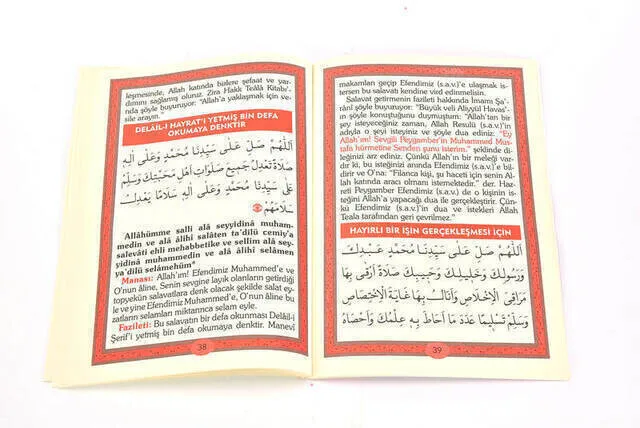 leşmesinde, Allah katında bizlere şefaat ve yar-
dımını sağlamış oluruz. Zira Hakk Teâlâ Kitabı'-
nda şöyle buyuruyor: "Allah'a yaklaşmak için ve-
sile arayın."
DELÂİL-İ HAYRAT'I YETMİŞ BİN DEFA
OKUMAYA DENKTİR
اَللّٰهُمَّ صَلِّ عَلٰى سَيِّدِنَا مُحَمَّدٍ وَعَلٰى اٰلِهِ
صَلَاةً تَعْدِلُ جَمِيعَ صَلَوَاتِ اَهْلِ مَحَبَّتِكَ وَسَلِّمْ
عَلٰى سَيِّدِنَا مُحَمَّدٍ وَعَلٰى اٰلِهِ سَلَامًا يَعْدِلُ
سَلَامَهُمْ
Allâhümme salli alâ seyyidinâ muham-
medin ve alâ âlihî salâten ta'dilü cemiy'a
salevâti ehli mehabbetike ve sellim alâ sey-
yidinâ muhammedin ve alâ âlihî selâmen
ya'dilü selâmehüm"
Manası: Allah'ım! Efendimiz Muhammed'e ve
O'nun âline, Senin sevgine layık olanların getirdiği
salavatlara denk olacak şekilde salat ey-
Efendimiz Muhammed'e, O'nun âline bu
zatların selamları miktarınca selam eyle.
Fazileti: Bu salavatın bir defa okunması Delâil-i
Şerif'i yetmiş bin defa okumaya denktir. Manevî
38
makamları geçip Efendimiz (s.a.v.)'e ulaşmak is-
tersen bu salavatı kendine vird edinmelisin.
Salavat getirmenin fazileti hakkında İmamı Şa'-
rânî şöyle buyuruyor: "Büyük veli Aliyyül Havas'-
ın şöyle konuştuğunu duymuştum: "Allah'tan bir
şey isteyeceğiniz zaman, Allah Resulü (s.a.v.)'in
adıyla o şeyi isteyiniz ve şöyle dua ediniz: "Ey
Allah'ım! Sevgili Peygamber'in Muhammed Mus-
tafa hürmetine Senden şunu isterim." şeklinde di-
leğinizi arz ediniz. Çünkü Allah'ın bir meleği var-
dır ki, bu isteğinizi anında Efendimiz (s.a.v.)'e bil-
dirir ve O'na: "Filanca kişi, şu haceti için senin Al-
lah katında aracı olmanı istemektedir." der. Haz-
reti Peygamber Efendimiz (s.a.v.) de o kişinin is-
teğini Allah'a yapacağı dua ile gerçekleştirir. Çün-
kü Efendimiz (s.a.v.)'in dua ve istekleri Allah
Teala tarafından geri çevrilmez."
HAYIRLI BİR İŞİN GERÇEKLEŞMESİ İÇİN
اَللّٰهُمَّ صَلِّ عَلٰى سَيِّدِنَا مُحَمَّدٍ عَبْدِكَ
وَرَسُولِكَ وَخَلِيلِكَ وَحَبِيبِكَ صَلَاةً اَرْقٰى بِهَا
مَرَاقِيَ الْاِخْلَاصِ وَاَنَالُ بِهَا غَايَةَ الْاِخْتِصَاصِ
وَسَلِّمْ تَسْلِيمًا عَدَدَ مَا اَحَاطَ بِهِ عِلْمُكَ وَاَحْصَاهُ
39